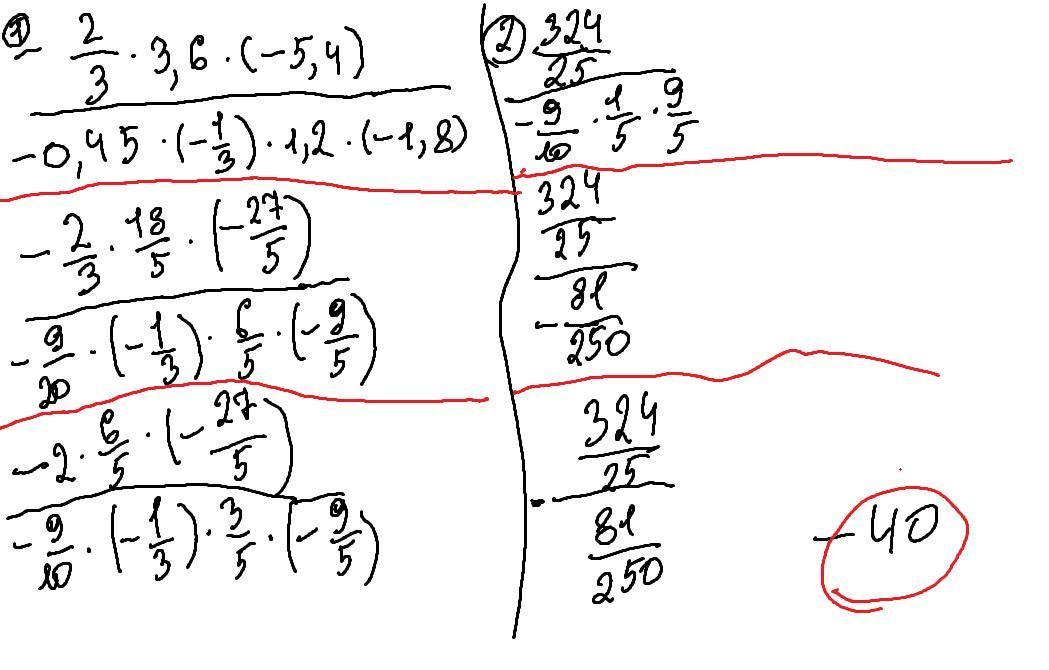 ① - 2/3 · 3,6 · (-5,4)
-0,45 · (-1/3) · 1,2 · (-1,8)
- 2/3 · 18/5 · (-27/5)
- 9/20 · (-1/3) · 6/5 · (-9/5)
-2 · 6/5 · (-27/5)
- 9/10 · (-1/3) · 3/5 · (-9/5)
② 324/25
- 9/10 · 1/5 · 9/5
324/25
- 81/250
- 324/25
81/250
-40